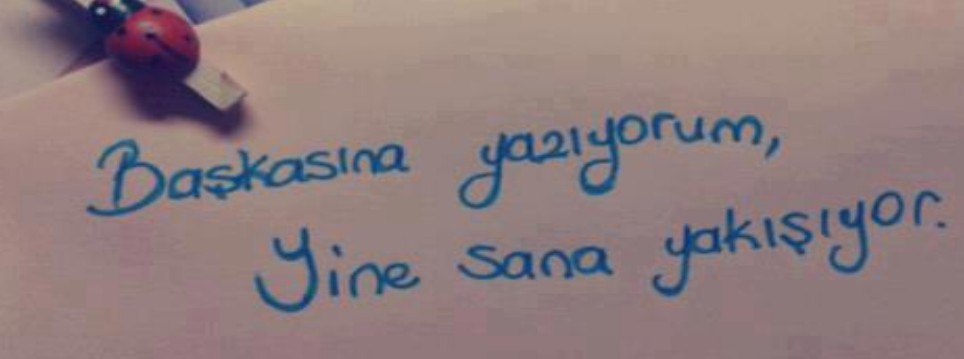 Başkasına yazıyorum,
Yine sana yakışıyor.